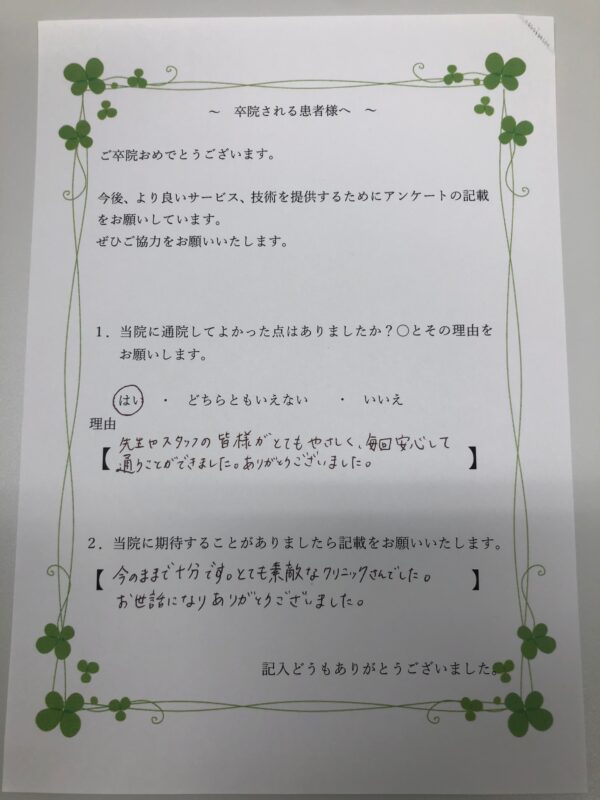 ～ 卒院される患者様へ ～
ご卒院おめでとうございます。
今後、より良いサービス、技術を提供するためにアンケートの記載
をお願いしています。
ぜひご協力をお願いいたします。
１．当院に通院してよかった点はありましたか？〇とその理由を
お願いします。
はい ・ どちらともいえない ・ いいえ
理由
【先生やスタッフの皆様がとてもやさしく、毎回安心して
通うことができました。ありがとうございました。】
２．当院に期待することがありましたら記載をお願いいたします。
【今のままで十分です。とても素敵なクリニックさんでした。】
お世話になりありがとうございました。
記入どうもありがとうございました。